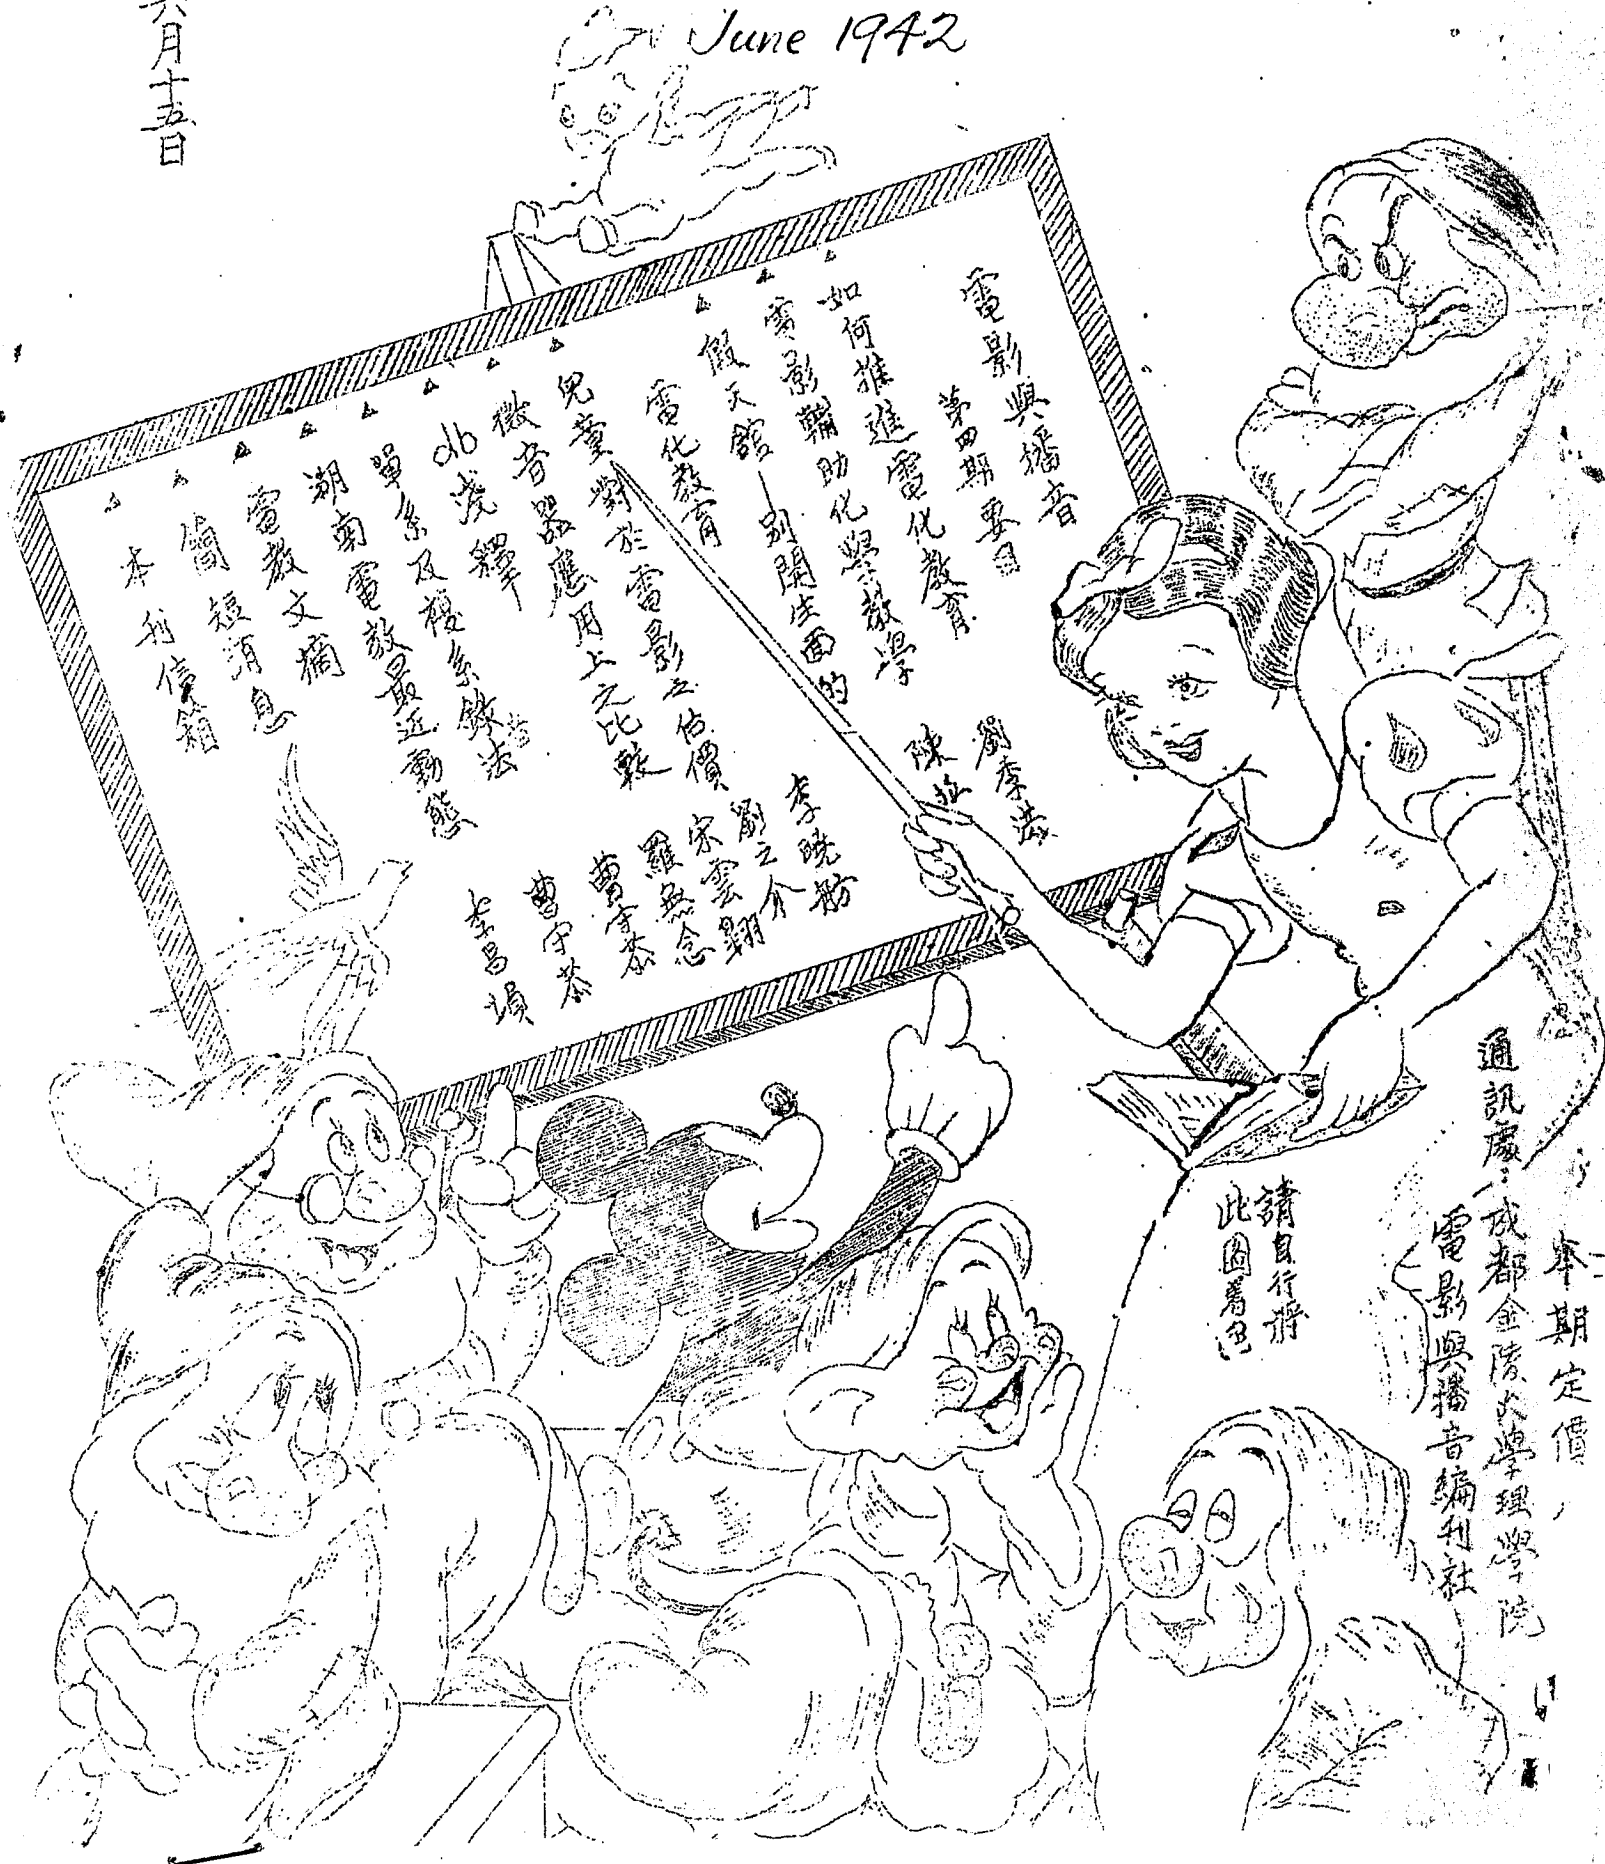 六月十五日
June 1942
電影與播音
第四期要目
如何推進電化教育
劉季洪
電影輔助化學教學
陳
假天舘—別開生面的
電化教育
李曉舫
兒童對於電影之估價
劉之介
微音器應用上之比較
宗雲翱
db淺釋
羅無念
單系及複系錄音法
曹守恭
湖南電教最近動態
曹守恭
電教文摘
李昌塤
簡短消息
本刊信箱
請自行將
此圖着色
通訊處：成都金陵大學理學院
電影與播音編刊社
本期定價